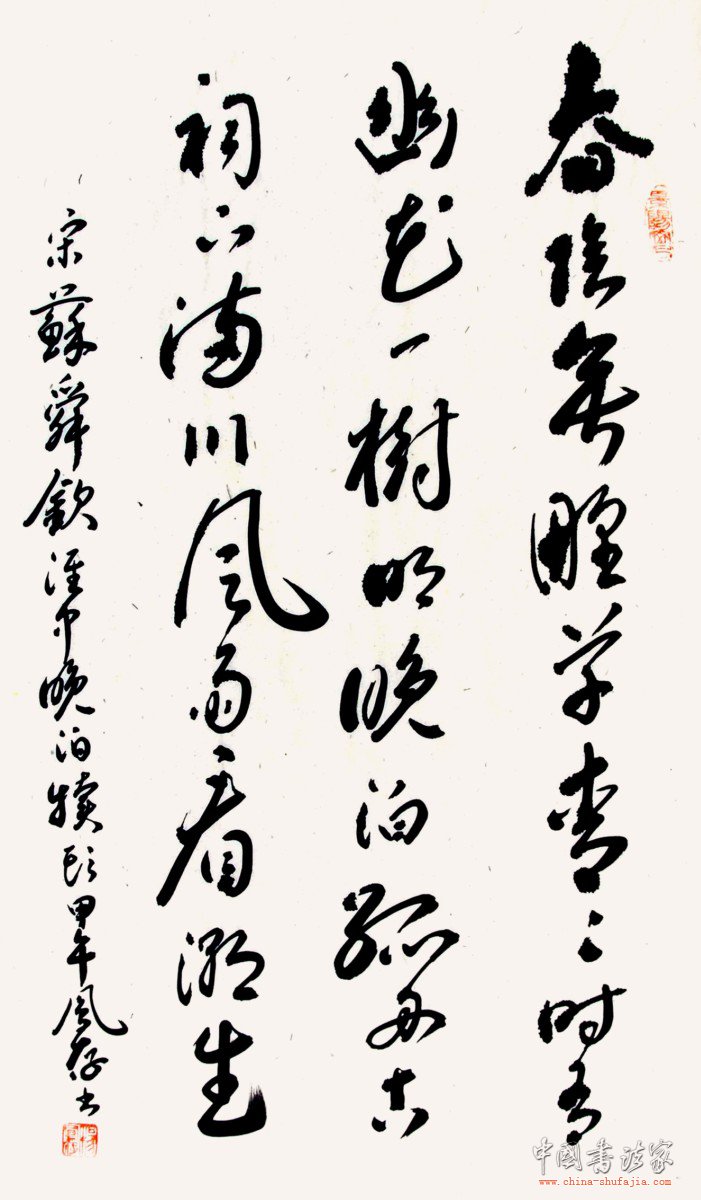 春陰垂野草青々时有
幽花一樹明晚泊孤舟古
祠下满川風雨看潮生
宋蘇舜欽淮中晚泊犢頭甲午風存书
中國書法家
www.china-shufajia.com